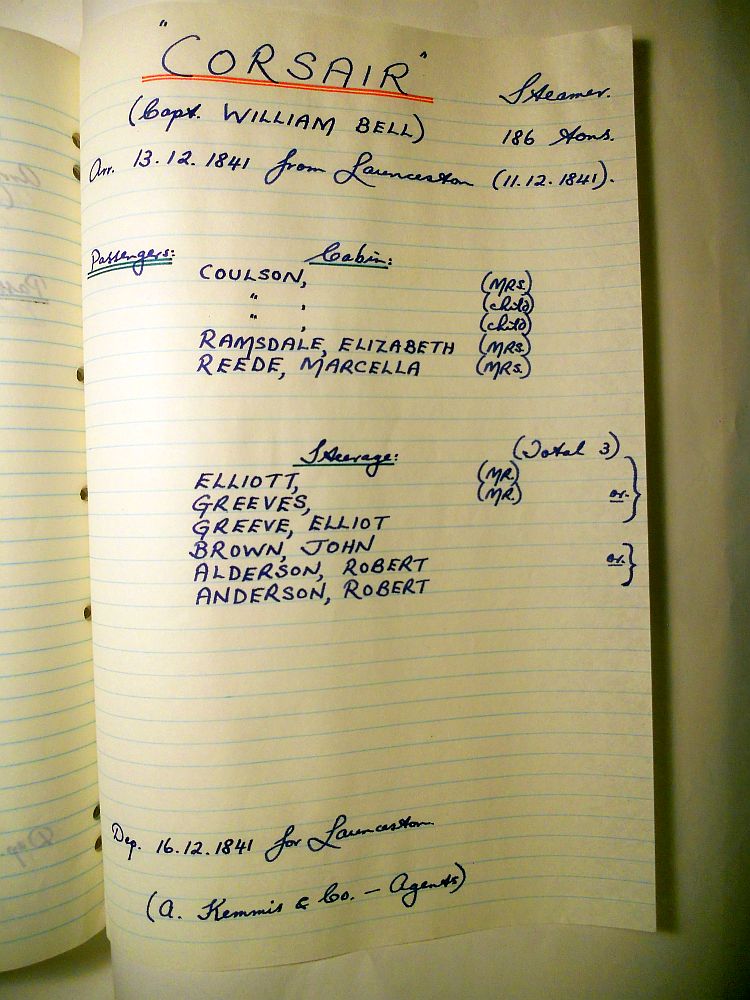 "CORSAIR"
Steamer.
(Capt. WILLIAM BELL)
186 Tons.
Arr. 13.12.1841 from Launceston (11.12.1841).
Passengers:
Cabin:
COULSON, (MRS.)
" , (child)
" , (child)
RAMSDALE, ELIZABETH (MRS.)
REEDE, MARCELLA (MRS.)
Steerage: (Total 3)
ELLIOTT, (MR.)
GREEVES, (MR.) or.
GREEVE, ELLIOT
BROWN, JOHN
ALDERSON, ROBERT or.
ANDERSON, ROBERT
Dep. 16.12.1841 for Launceston
(A. Kemmis & Co. - Agents)